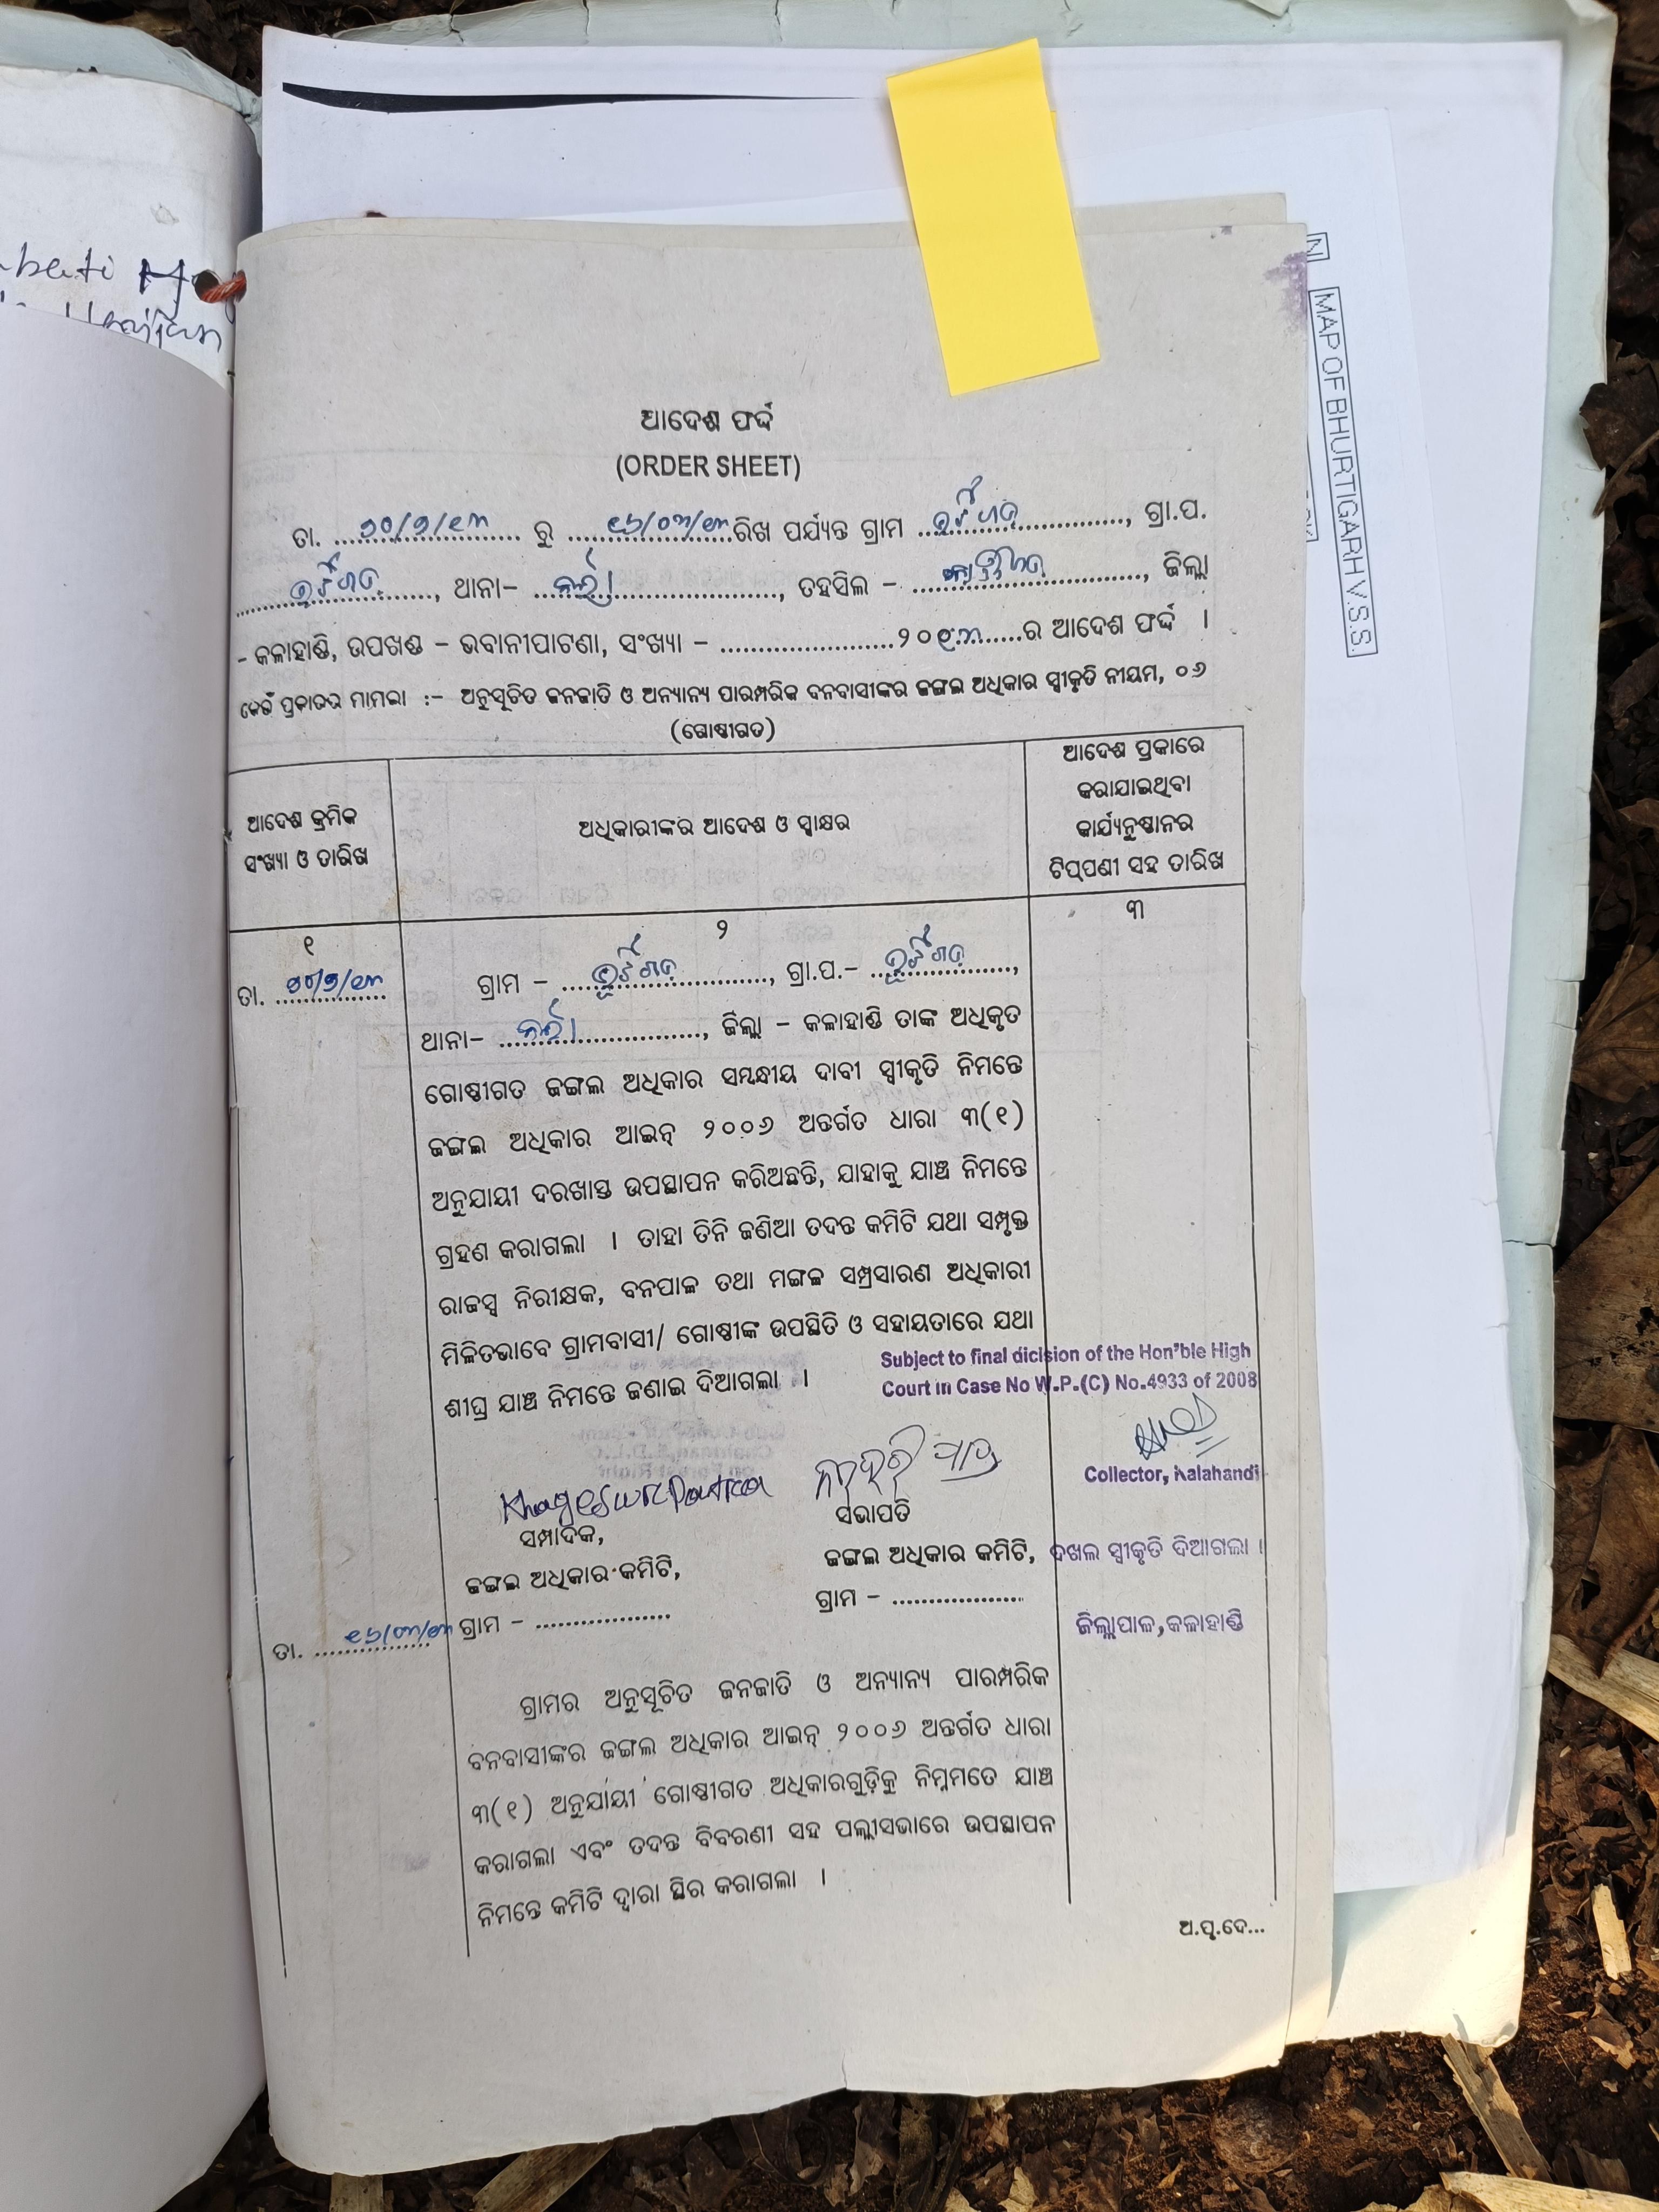 ଆଦେଶ ଫର୍ଦ୍ଦ
(ORDER SHEET)
ତା. ୨୦/୨/୧୩ ରୁ ୧୬/୦୩/୧୩ ରିଖ ପର୍ଯ୍ୟନ୍ତ ଗ୍ରାମ ...................., ଗ୍ରା.ପ.
...................., ଥାନା- ...................., ତହସିଲ - ...................., ଜିଲ୍ଲା
- କଳାହାଣ୍ଡି, ଉପଖଣ୍ଡ - ଭବାନୀପାଟଣା, ସଂଖ୍ୟା - ....................୨୦୧୩......ର ଆଦେଶ ଫର୍ଦ୍ଦ ।
କେଉଁ ପ୍ରକାରର ମାମଲା :- ଅନୁସୂଚିତ ଜନଜାତି ଓ ଅନ୍ୟାନ୍ୟ ପାରମ୍ପରିକ ବନବାସୀଙ୍କର ଜଙ୍ଗଲ ଅଧିକାର ସ୍ୱୀକୃତି ନୀୟମ, ୦୬
(ଗୋଷ୍ଠୀଗତ)
ଆଦେଶ କ୍ରମିକ
ସଂଖ୍ୟା ଓ ତାରିଖ
ଅଧିକାରୀଙ୍କର ଆଦେଶ ଓ ସ୍ୱାକ୍ଷର
ଆଦେଶ ପ୍ରକାରେ
କରାଯାଇଥିବା
କାର୍ଯ୍ୟନୁଷ୍ଠାନର
ଟିପ୍ପଣୀ ସହ ତାରିଖ
୧
୨
୩
ତା. ୨୦/୨/୧୩
ଗ୍ରାମ - ...................., ଗ୍ରା.ପ.- ....................,
ଥାନା- ...................., ଜିଲ୍ଲା - କଳାହାଣ୍ଡି ତାଙ୍କ ଅଧିକୃତ
ଗୋଷ୍ଠୀଗତ ଜଙ୍ଗଲ ଅଧିକାର ସମ୍ବନ୍ଧୀୟ ଦାବୀ ସ୍ୱୀକୃତି ନିମନ୍ତେ
ଜଙ୍ଗଲ ଅଧିକାର ଆଇନ୍ ୨୦୦୬ ଅନ୍ତର୍ଗତ ଧାରା ୩(୧)
ଅନୁଯାୟୀ ଦରଖାସ୍ତ ଉପସ୍ଥାପନ କରିଅଛନ୍ତି, ଯାହାକୁ ଯାଞ୍ଚ ନିମନ୍ତେ
ଗ୍ରହଣ କରାଗଲା । ତାହା ତିନି ଜଣିଆ ତଦନ୍ତ କମିଟି ଯଥା ସମ୍ପୃକ୍ତ
ରାଜସ୍ୱ ନିରୀକ୍ଷକ, ବନପାଳ ତଥା ମଙ୍ଗଳ ସମ୍ପ୍ରସାରଣ ଅଧିକାରୀ
ମିଳିତଭାବେ ଗ୍ରାମବାସୀ/ ଗୋଷ୍ଠୀଙ୍କ ଉପସ୍ଥିତି ଓ ସହାୟତାରେ ଯଥା
ଶୀଘ୍ର ଯାଞ୍ଚ ନିମନ୍ତେ ଜଣାଇ ଦିଆଗଲା ।
Subject to final dicision of the Hon'ble High
Court in Case No W.P.(C) No.4933 of 2008
Collector, Kalahandi
ସମ୍ପାଦକ,
ଜଙ୍ଗଲ ଅଧିକାର କମିଟି,
ଗ୍ରାମ - ..................
ସଭାପତି
ଜଙ୍ଗଲ ଅଧିକାର କମିଟି,
ଗ୍ରାମ - ..................
ଦଖଲ ସ୍ୱୀକୃତି ଦିଆଗଲା ।
ଜିଲ୍ଲାପାଳ,କଳାହାଣ୍ଡି
ତା. ୧୬/୦୩/୧୩
ଗ୍ରାମର ଅନୁସୂଚିତ ଜନଜାତି ଓ ଅନ୍ୟାନ୍ୟ ପାରମ୍ପରିକ
ବନବାସୀଙ୍କର ଜଙ୍ଗଲ ଅଧିକାର ଆଇନ୍ ୨୦୦୬ ଅନ୍ତର୍ଗତ ଧାରା
୩(୧) ଅନୁଯାୟୀ ଗୋଷ୍ଠୀଗତ ଅଧିକାରଗୁଡ଼ିକୁ ନିମ୍ନମତେ ଯାଞ୍ଚ
କରାଗଲା ଏବଂ ତଦନ୍ତ ବିବରଣୀ ସହ ପଲ୍ଲୀସଭାରେ ଉପସ୍ଥାପନ
ନିମନ୍ତେ କମିଟି ଦ୍ୱାରା ସ୍ଥିର କରାଗଲା ।
ଅ.ପୃ.ଦେ...
MAP OF BHURTIGARH V.S.S.